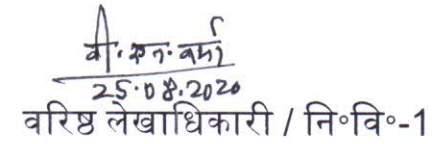 वी. एन. वर्मा
25.08.2020
वरिष्ठ लेखाधिकारी / नि॰वि॰-1